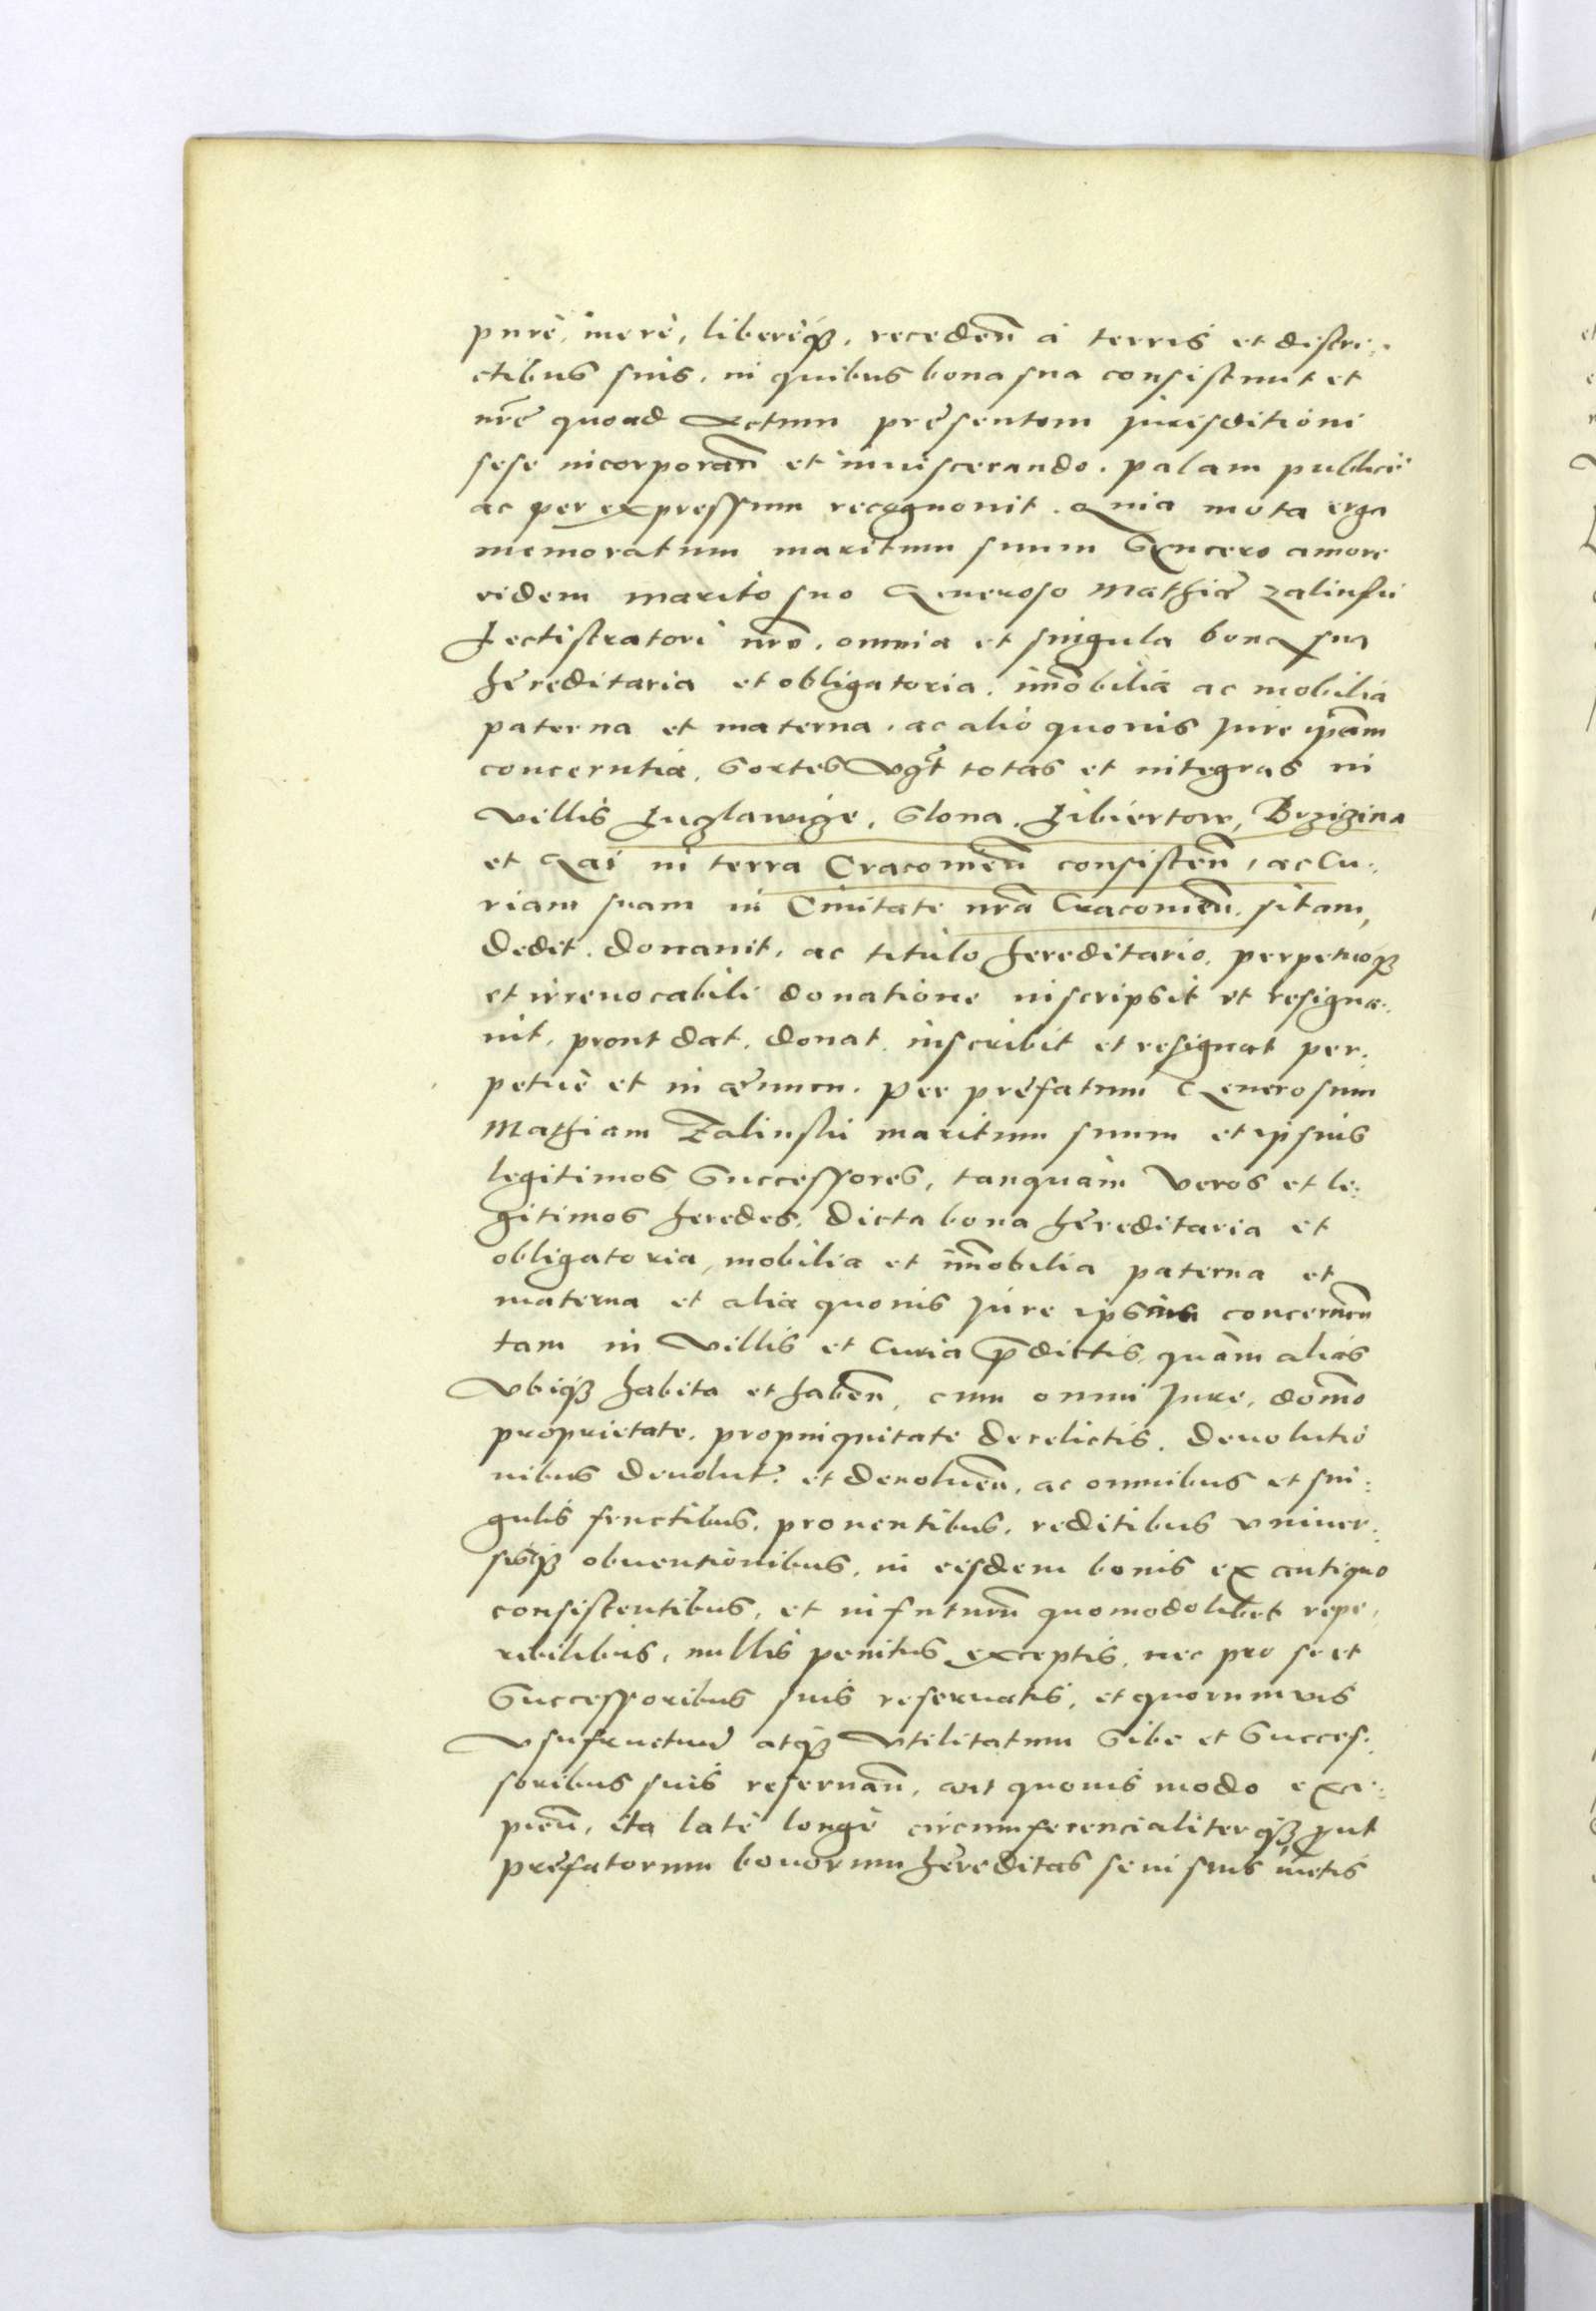 purè, merè, liberèq₃, recedeñ à terris et distri=
ctibus suis, in quibus bona sua consistunt et
nr̃e quoad Actum præsentem jurisditioni
sese incorporañ et inuiscerando. palam publicè
ac per expressum recognouit. Quia mota erga
memoratum maritum suum syncero amore
eidem marito suo Generoso Mathiæ Zalinski
Lectistratori nr̃o, omnia et singula bona sua
hæreditaria et obligatoria, im̃obilia ac mobilia
paterna et materna, ac alio quouis jure ip̃am
concerntia, Sortes vɀt totas et integras in
villis Luzlawize, Slona, Bzizina
et Gai in terra Cracouieñ consisteñ, ac Cu=
riam suam in Ciuitate nr̃a Cracouieñ. sitam,
dedit. donauit, ac titulo hereditario, perpetuoq₃
et irreuocabili donatione inscripsit et resigna=
uit, prout dat, donat, inscribit et resignat per=
petuè et in æuum. per præfatum Generosum
Mathiam Zalinski maritum suum et ipsius
legitimos Successores, tanquam veros et le=
gitimos heredes, dicta bona hæreditaria et
obligatoria, mobilia et im̃obilia paterna et
materna et alia quouis jure concerneñ
tam in villis et Curia p̃dictis, quàm alias
vbiq₃ habita et habeñ, cum omni jure, dom̃o
proprietate, propinquitate derelictis, deuolutio
nibus deuolut̃. et deuolueñ, ac omnibus et sin=
gulis fructibus, prouentibus, reditibus vniuer=
sisq₃ obuentionibus, in eisdem bonis ex antiquo
consistentibus, et in futurũ quomodolibet repe=
ribilibus, nullis penitus exceptis, nec pro se et
Successoribus suis reseruatis, et quorumuis
vsufructuũ atq₃ vtilitatum Sibi et Succes=
soribus suis reseruañ, aut quouis modo exci=
pieñ, ita latè longè circumferencialiterq₃ prout
præfatorum bonorum hæreditas se in suis metis